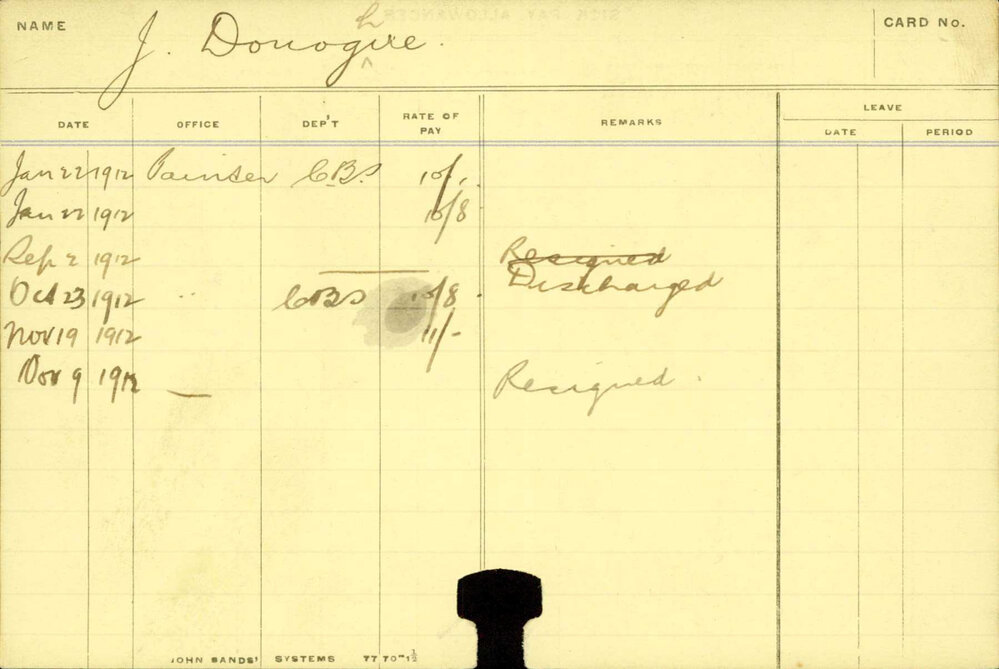 NAME J. Donoghue. CARD No.
LEAVE
DATE OFFICE DEP'T RATE OF PAY REMARKS DATE PERIOD
Jan 22 1912 Painter C.B.S 10/-
Jan 22 1912 10/8
Sep 2 1912 Resigned
Discharged
Oct 23 1912 " CBS 10/8
Nov 19 1912 11/-
Nov 9 1912 — Resigned.
JOHN SANDS' SYSTEMS 77 70m 1½